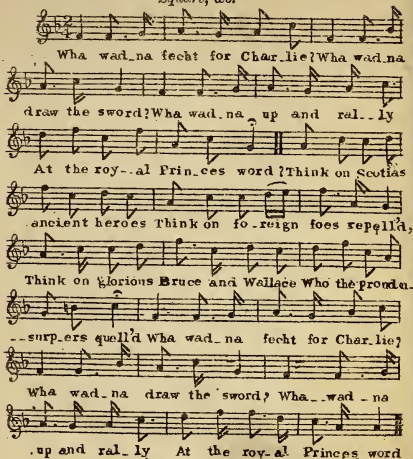 Square, &c.
Wha wad_na fecht for Char_lie? Wha wad_na
draw the sword? Wha wad_na up and ral__ly
At the roy-_al Prin_ces word? Think on Scotias
ancient heroes Think on fo_reign foes repell'd,
Think on glorious Bruce and Wallace Who the proud u_
__surp_ers quell'd Wha wad_na fecht for Char_lie?
Wha wad_na draw the sword? Wha__wad_na
up and ral_ly At the roy-al Princes word